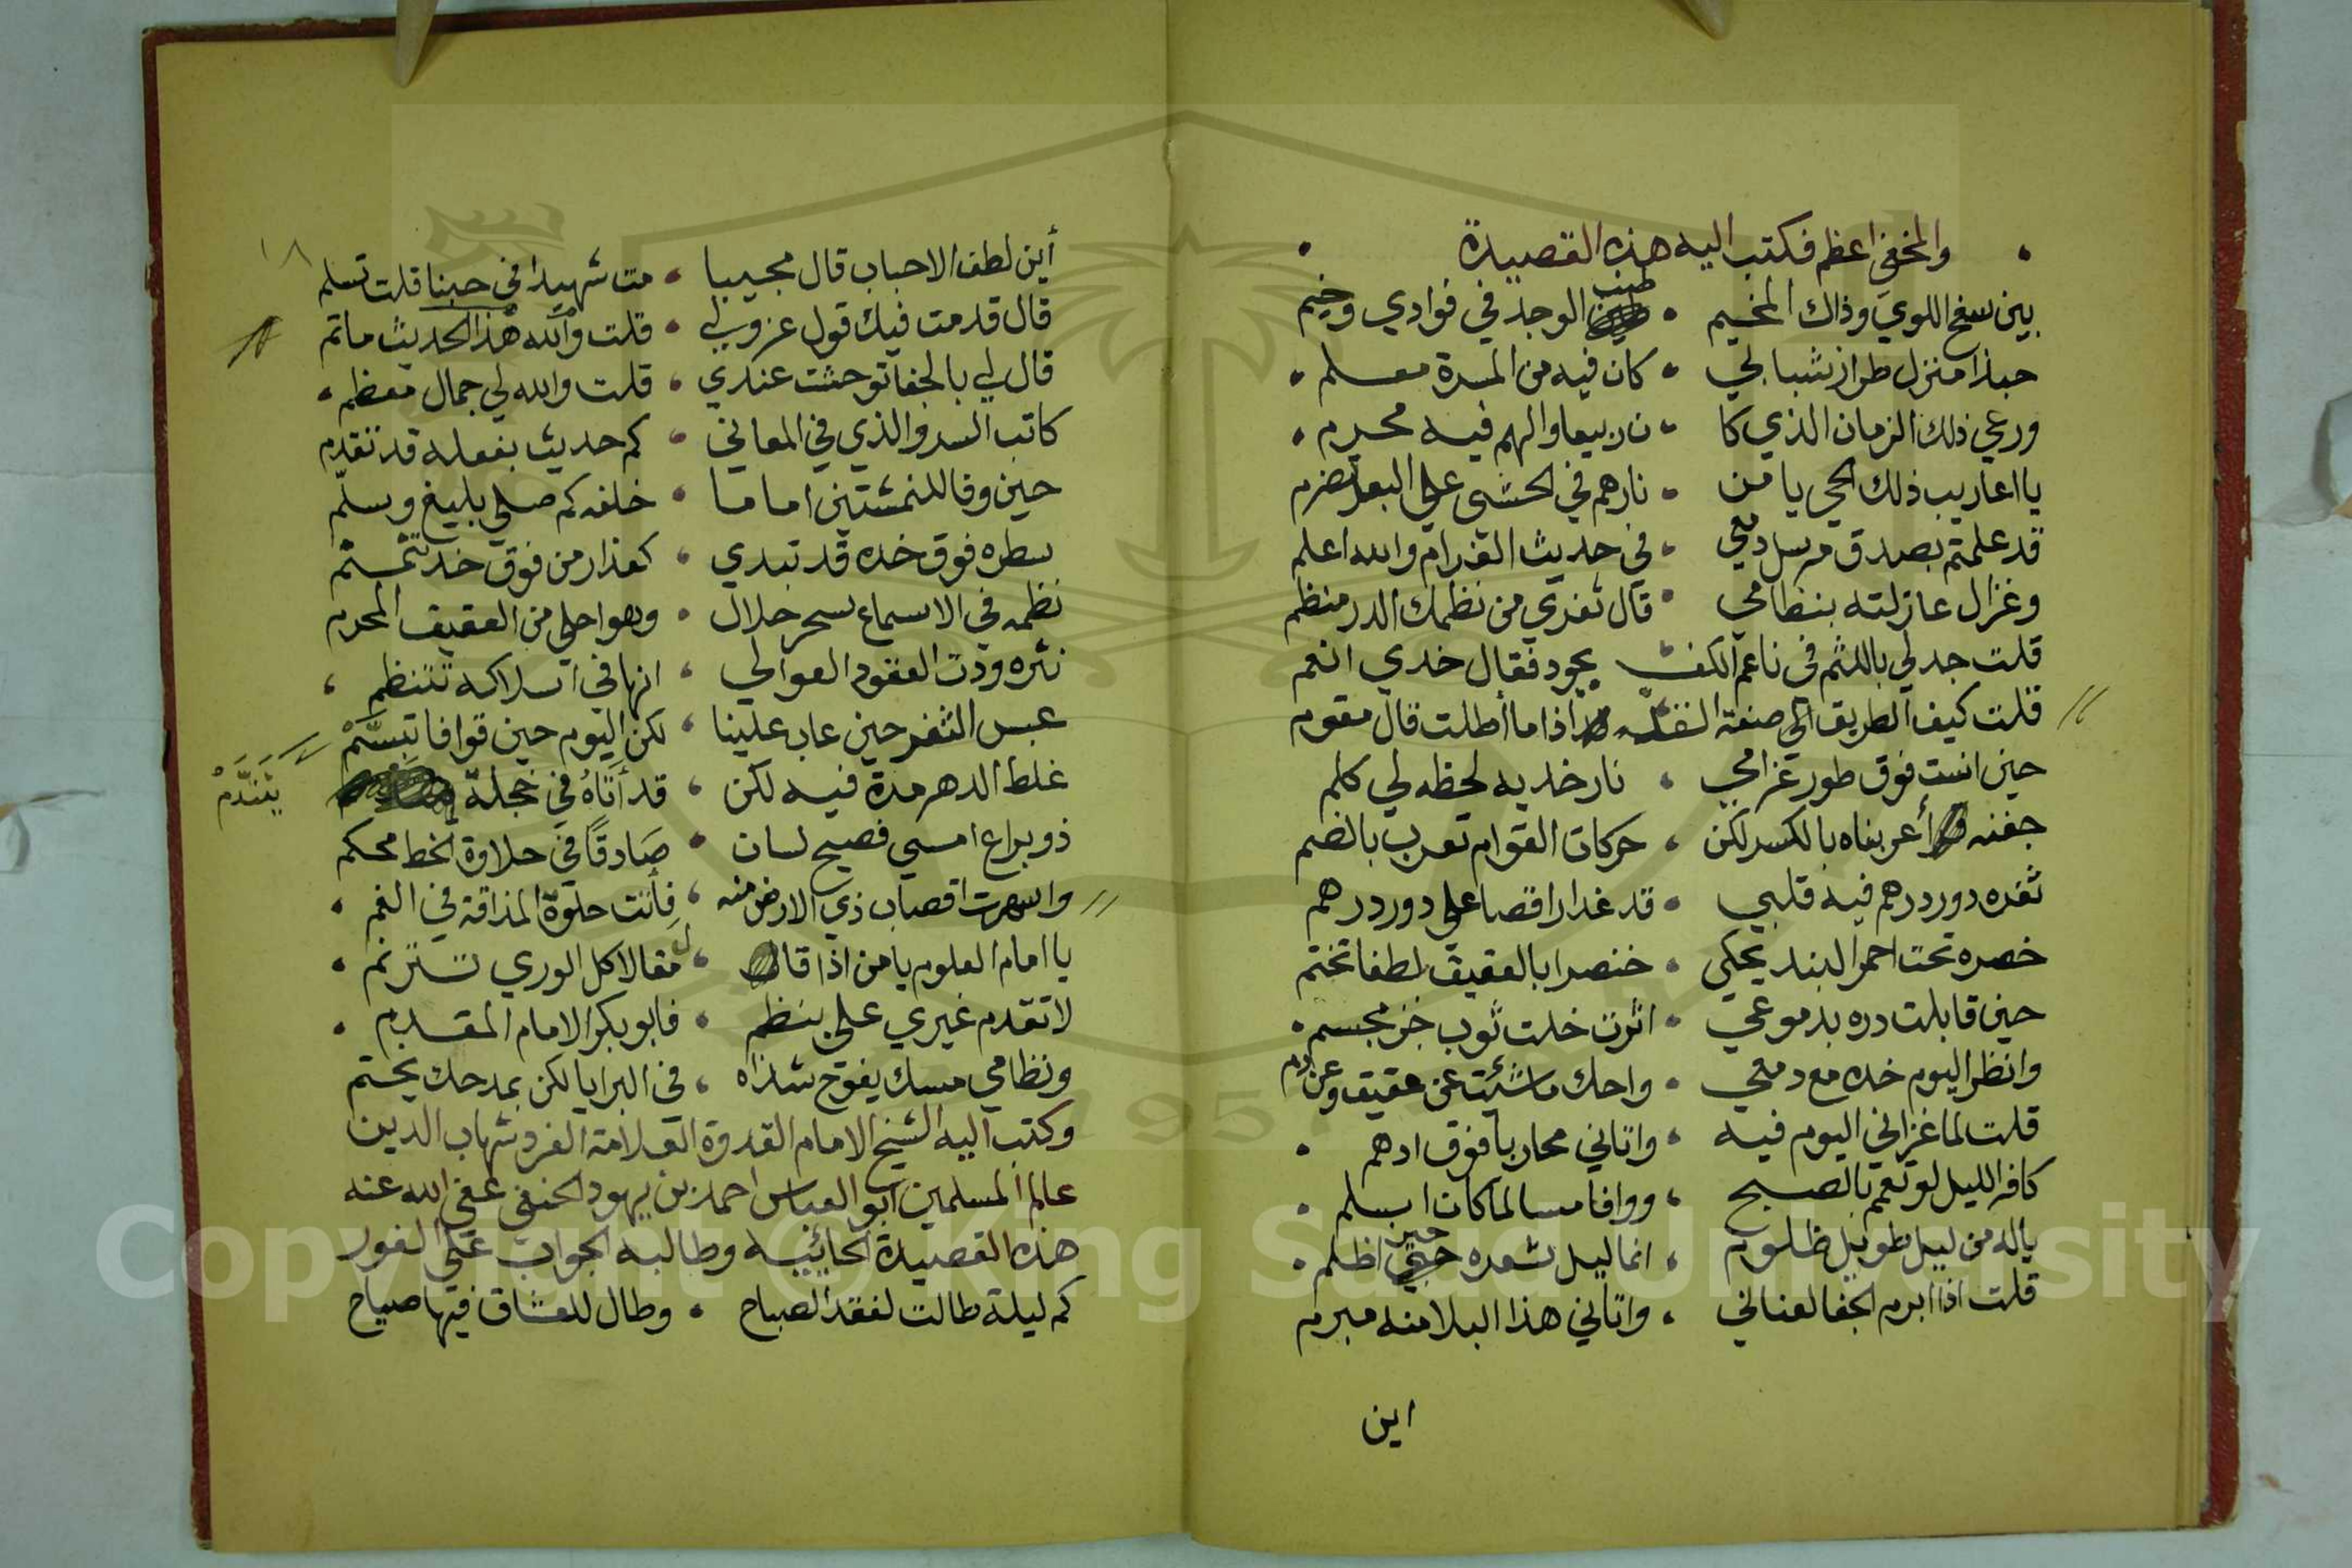 والمخفي اعظم فكتب اليه هذه القصيدة
بين سفح اللوي وذاك المخيم • طنب الوجد في فوادي وخيم
حبذا منزل طراز شبابي • كان فيه من المسرة معلم
ورعي ذلك الزمان الذي كا • ن ربيعا والهم فيه محرم
يا اعاريب ذلك الحي يا من • نارهم في الحشى علي البعد تضرم
قد علمتم بصدق مرسل دمعي • في حديث الغرام والله اعلم
وغزال غازلته بنظامي • قال ثغري من نظمك الدر منظم
قلت جد لي باللثم في ناعم الكف يجود فقال خدي انعم
قلت كيف الطريق الي صنعة اذا ما أطلت قال مقوم
حين انست فوق طور غرامي • نار خديه لحظه لي كلم
جفنه أعربناه بالكسر لكن • حركات القوام تعرب بالضم
ثغره دور درهم فيه قلبي • قد غدا راقصا علي دور درهم
خصره تحت احمر البند يحكي • خنصرا بالعقيق لطفا تختم
حين قابلت دره بدموعي • اثرت خلت ثوب خز مجسم
وانظر اليوم خده مع دمعي • واحك ما شئت عن عقيق وعن دم
قلت لما غزاني اليوم فيه • واتاني محاربا فوق ادهم
كافر الليل لو تعمم بالصبح • ووافا مسالما كان اسلم
ياله من ليل طويل ظلوم • انما ليل شعره حين اظلم
قلت اذا ابرم الجفا لعناني • واتاني هذا البلا منه مبرم
اين
١٨
أين لطف الاحباب قال مجيبا • مت شهيدا في حبنا قلت تسلم
قال قد مت فيك قول عزولي • قلت والله هذا الحديث ما تم
قال لي بالجفا توحشت عندي • قلت والله لي جمال معظم
كاتب السر والذي في المعاني • كم حديث بفعله قد تقدم
حين وفا للنمشتين اماما • خلفه كم صلي بليغ وسلم
سطره فوق خده قد تبدي • كعذار من فوق خد تمنم
نظمه في الاسماع سحر حلال • وهو احلي من العقيق المحرم
نثره ودت العقود العوالي • انها في اسلاكه تتنظم
عبس الثغر حين عاب علينا • لكن اليوم حين قوافا تبسم
غلط الدهر مدة فيه لكن • قد أتاه في خجلة
يتندم
ذو يراع امسي فصيح لسان • صادقا في حلاوة الخط محكم
واسهرت اقصاب ذي الارض منه • فأتت حلوة المذاقة في الفم
يا امام العلوم يا من اذا قا • ل مقالا كل الوري تترنم
لا تقدم غيري علي بنظم • فابو بكر الامام المقدم
ونظامي مسك يفوح شذاه • في البرايا لكن بمدحك يختم
وكتب اليه الشيخ الامام القدوة العلامة الفرد شهاب الدين
عالم المسلمين ابو العباس احمد بن يهود الحنفي عفي الله عنه
هذه القصيدة الحائيه وطالبه الجواب علي الفور
كم ليلة طالت لفقد الصباح • وطال للعشاق فيها صياح
Copyright © King Saud University
1957